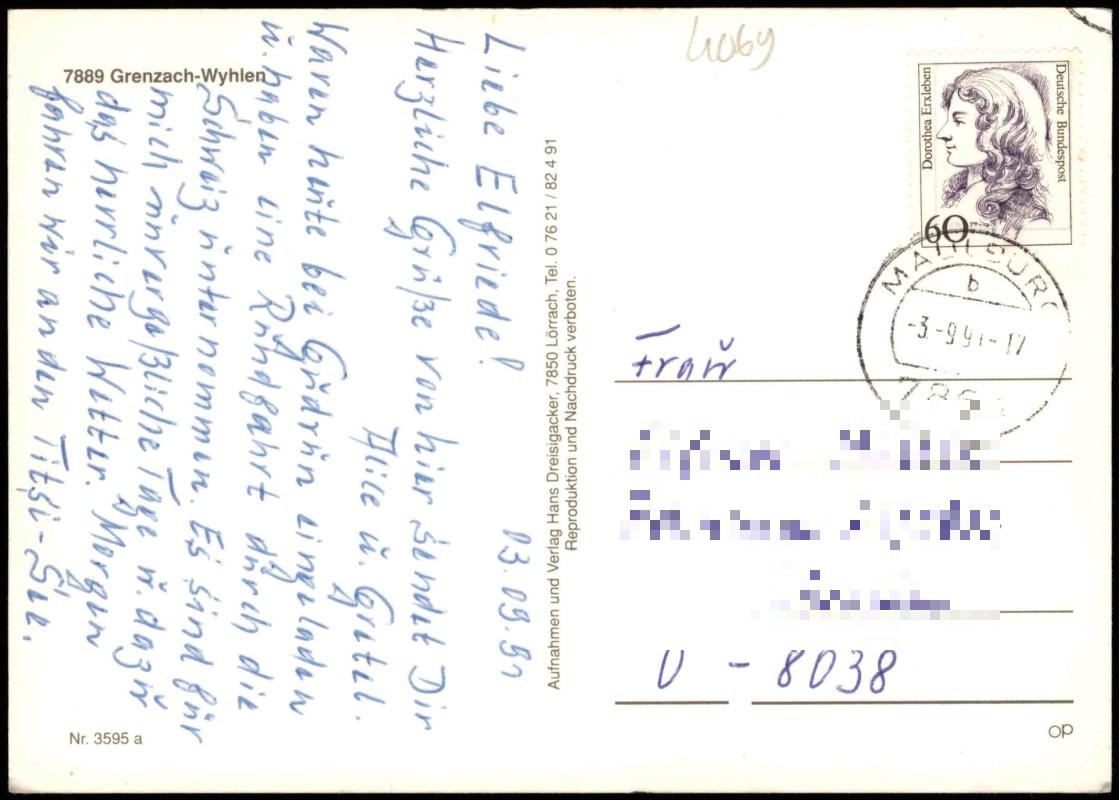 7889 Grenzach-Wyhlen
03.09.91
Liebe Elfriede!
Herzliche Grüße von hier sendet Dir
Alice u. Gretel.
Waren heute bei Gudrun eingeladen
u. haben eine Rundfahrt durch die
Schweiz unternommen. Es sind für
mich unvergeßliche Tage u. dazu
das herrliche Wetter. Morgen
fahren wir an den Titisi-See.
Nr. 3595 a
Aufnahmen und Verlag Hans Dreisigacker, 7850 Lörrach, Tel. 0 76 21 / 82 4 91
Reproduktion und Nachdruck verboten.
4069
Dorothea Erxleben
Deutsche Bundespost
60
b
-3.-9.91-17
Frau
U - 8038
op